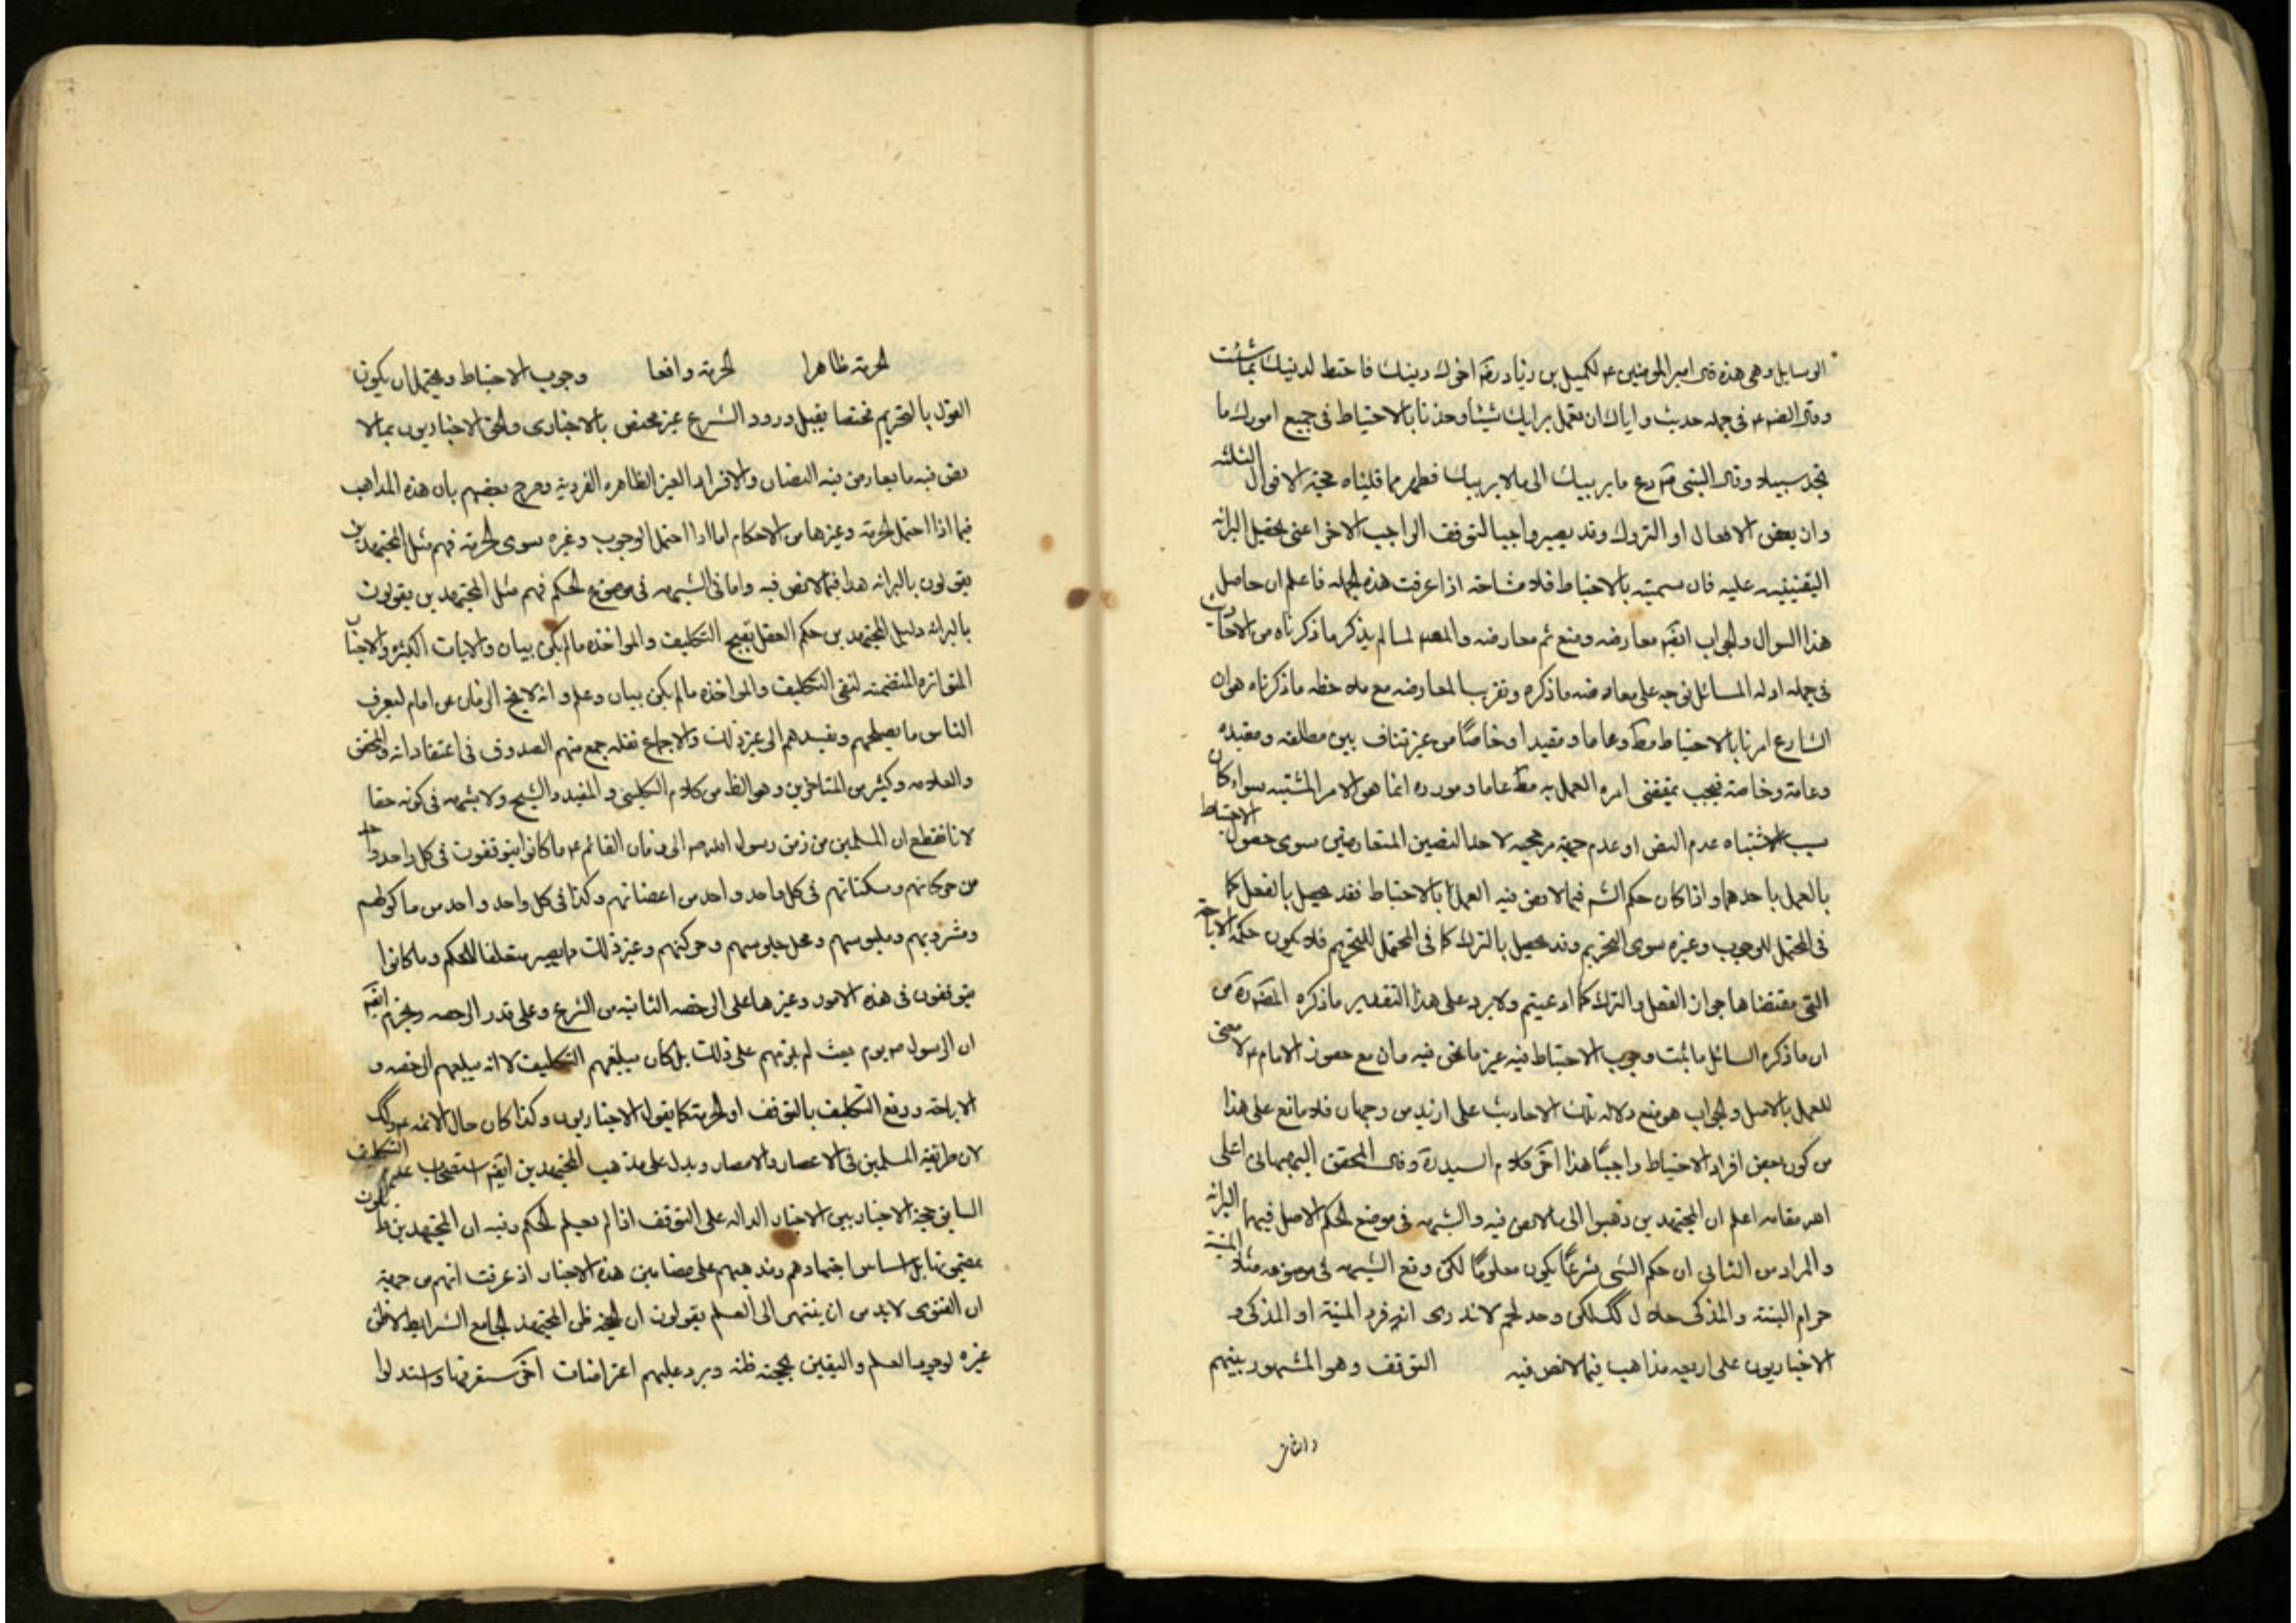 الوسايل وهي هذه قال امير المومنين ع لكميل بن زياد رضه اخوك دينك فاحتط لدينك بما شئت
وقال الرضه ع في جمله حديث واياك ان تعمل برايك شيئا وخذ بالاحتياط في جميع امورك ما
تجد سبيلا وقال النبي ص دع ما يريبك الى ما لا يريبك فظهر مما قلناه حجية الاقوال الثلثه
وان بعض الافعال او التروك وقد يصير واجبا لتوقف الواجب الاخر اعنى تحصيل البرائه
اليقينيه عليه فان سميته بالاحتياط فلا مشاحه اذا عرفت هذه الجمله فاعلم ان حاصل
هذا السوال والجواب ايضه معارضه ومنع ثم معارضه والمصـ لما لم يذكر ما ذكرناه من الاحاديث
في جمله ادله المسائل توجه على معارضه ما ذكره وتقريب المعارضه مع ملاحظه ما ذكرناه هو ان
الشارع امرنا بالاحتياط مط وعاما ومقيدا وخاصًا من غير تناف بين مطلقه ومقيده
وعامة وخاصة فيجب بمقتضى امره العمل به مط عاما ومورده انما هو الامر المشتبه سواء كان
سبب الاشتباه عدم النص او عدم جهة مرجحيه لاحد النصين المتعارضين سوى حصول الاحتياط
بالعمل باحدهما واذا كان حكم الشـ فيما لا نص فيه العمل بالاحتياط فقد يحصل بالفعل كما
في المحتمل للوجوب وغيره سوى التحريم وقد يحصل بالترك كما في المحتمل للتحريم فلا يكون حكمه الاباحة
التى مقتضاها جواز الفعل والترك كما ادعيتم ولا يرد على هذا التقدير ما ذكره المصـ ره من
ان ما ذكره السائل ما يثبت وجوب الاحتياط فيه غير ما نحن فيه وان مع حضور الامام ع لا معنى
للعمل بالاصل والجواب هو منع دلاله تلك الاحاديث على ازيد من رجحان فلا مانع على هذا
من كون بعض افراد الاحتياط واجبًا هذا اخر كلام السيد ره وقال المحقق البهبهانى اعلى
الله مقامه اعلم ان المجتهدين ذهبوا الى ما لا نص فيه والشبهه في موضع الحكم الاصل فيهما البرائه
والمراد من الثانى ان حكم الشى شرعًا يكون معلومًا لكن وقع الشبهه في موضوعه مثلا الميتة
حرام البتة والمذكى حلال كك لكن وجد لحم لا ندرى انه فرد الميتة او المذكى و
الاخباريون على اربعه مذاهب فيما لا نص فيه التوقف وهو المشهور بينهم
والثانى
الحرمة ظاهرا الحرمة واقعا وجوب الاحتياط ويحتمل ان يكون
القول بالتحريم مختصا بقبل ورود الشرع غير مختص بالاخبارى والحق الاخباريون بما لا
نص فيه ما تعارض فيه النصان والافراد الغير الظاهره الفردية وصرح بعضهم بان هذه المذاهب
فيما اذا احتمل الحرمة وغيرها من الاحكام اما اذا احتمل الوجوب وغيره سوى الحرمة فهم مثل المجتهدين
يقولون بالبرائه هذا فيما لا نص فيه واما في الشبهه في موضوع الحكم فهم مثل المجتهدين يقولون
بالبرائه دليل المجتهدين حكم العقل بقبح التكليف والمواخذه ما لم يكن بيان والايات الكثيره والاخبار
المتواتره المتضمنة لنفى التكليف والمواخذه ما لم يكن بيان وعلم وانه لا يخ الزمان عن امام ليعرف
الناس ما يصلحهم ويفسدهم الى غير ذلك والاجماع نقله جمع منهم الصدوق في اعتقاداته والمحقق
والعلامه وكثير من المتاخرين وهو الظ من كلام الكلينى والمفيد والشيخ ولا شبهه في كونه حقا
لانا نقطع ان المسلمين من زمن رسول الله ص الى زمان القائم ع ما كانوا يتوقفون في كل واحد واحد
من حركاتهم وسكناتهم في كل واحد واحد من اعضائهم وكذا في كل واحد واحد من ماكولهم
ومشروبهم وملبوسهم ومحل جلوسهم وحركتهم وغير ذلك مما يصير متعلقا للحكم وما كانوا
يتوقفون في هذه الامور وغيرها على الرخصه الثابته من الشرع وعلى قدر الرخصه ونجزم ايضه
ان الرسول ص يوم بعث لم يلزمهم على ذلك بل كان يبلغهم التكليف لا انه يبلغهم الرخصه و
الاباحة ورفع التكليف بالتوقف او الحرمة كما يقول الاخباريون وكذا كان حال الائمه ع وكك
لان طريقة المسلمين في الاعصار والامصار ويدل على مذهب المجتهدين ايضه استصحاب عدم التكليف
السابق حجة الاخباريين الاخبار الداله على التوقف اذا لم يعلم الحكم وفيه ان المجتهدين قائلون
بمقتضاها بل اساس اجتهادهم ومذهبهم على مضامين هذه الاخبار اذ عرفت انهم من جهة
ان الفتوى لا بد من ان ينتهى الى العلم يقولون ان الحجة ظن المجتهد الجامع الشرايط لا ظن
غيره لوجوب العلم واليقين بحجية ظنه ويرد عليهم اعتراضات اخر ستعرفها واستدلوا